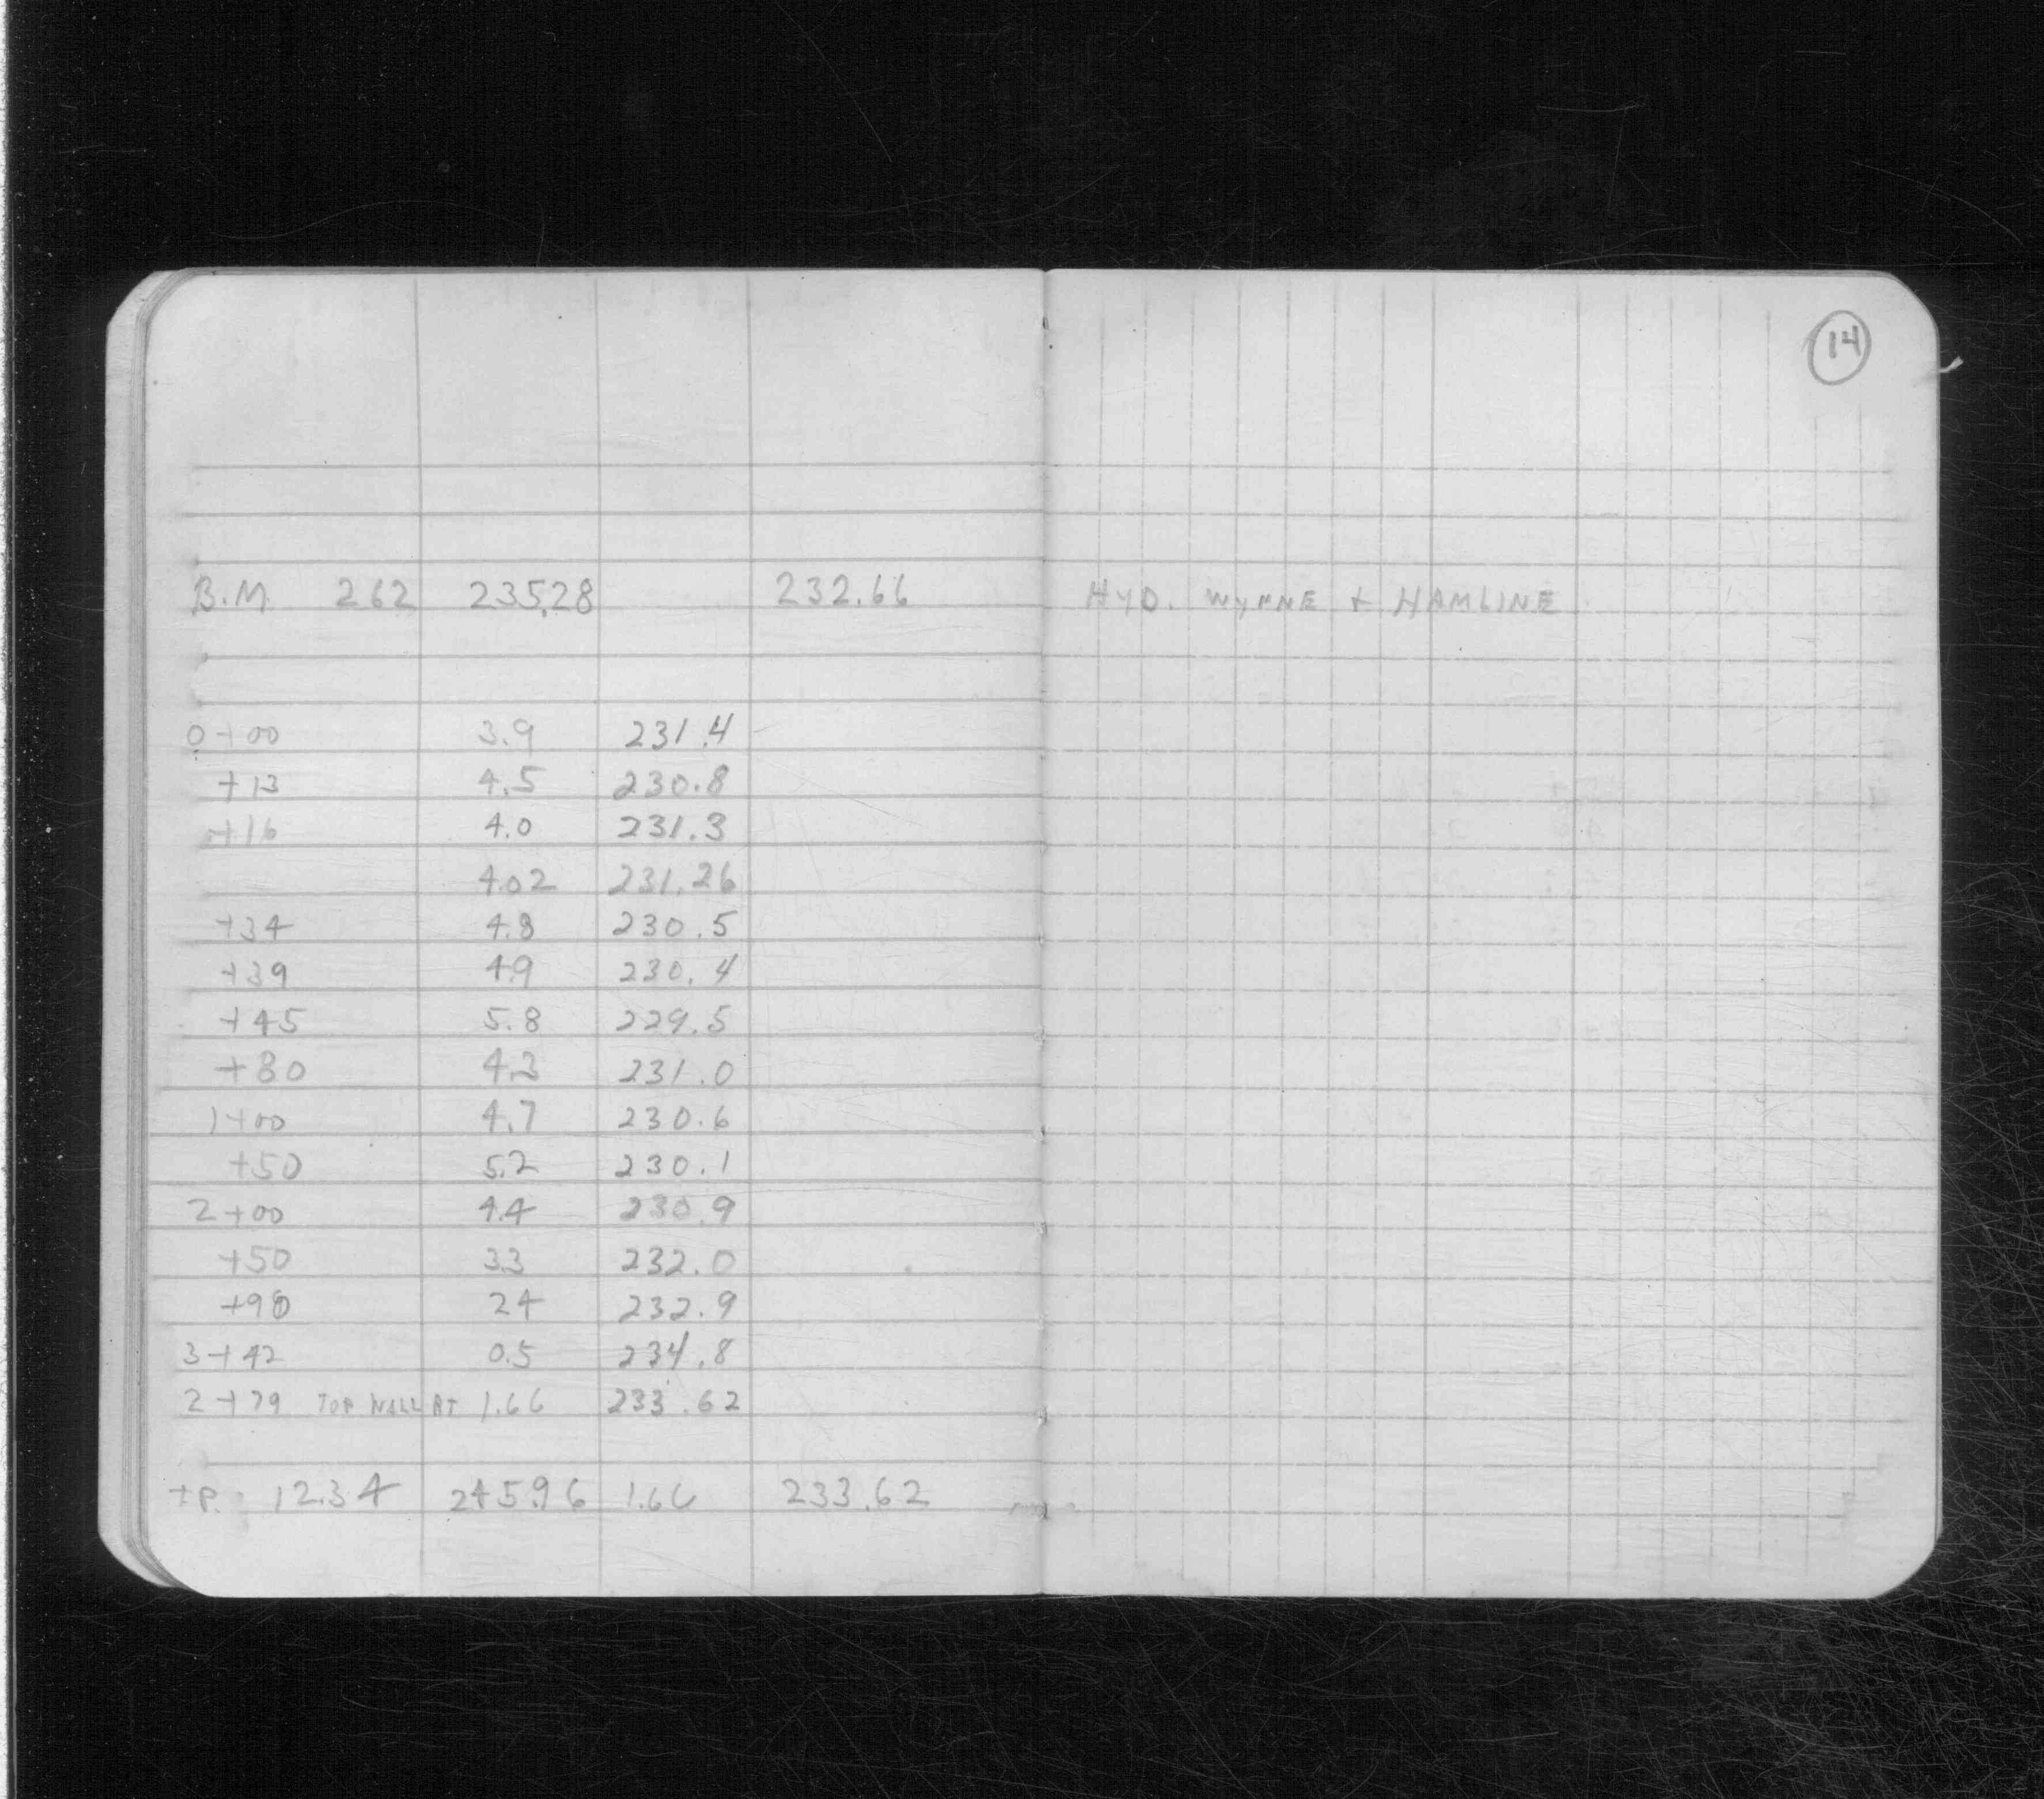 14
B.M. 262 235.28 232.66 HYD. WYNNE + HAMLINE
0+00 3.9 231.4
+13 4.5 230.8
+16 4.0 231.3
4.02 231.26
+34 4.8 230.5
+39 4.9 230.4
+45 5.8 229.5
+80 4.3 231.0
1+00 4.7 230.6
+50 5.2 230.1
2+00 4.4 230.9
+50 3.3 232.0
+90 24 232.9
3+42 0.5 234.8
2+79 TOP WALL AT 1.66 233.62
T.P. 12.34 245.96 1.66 233.62